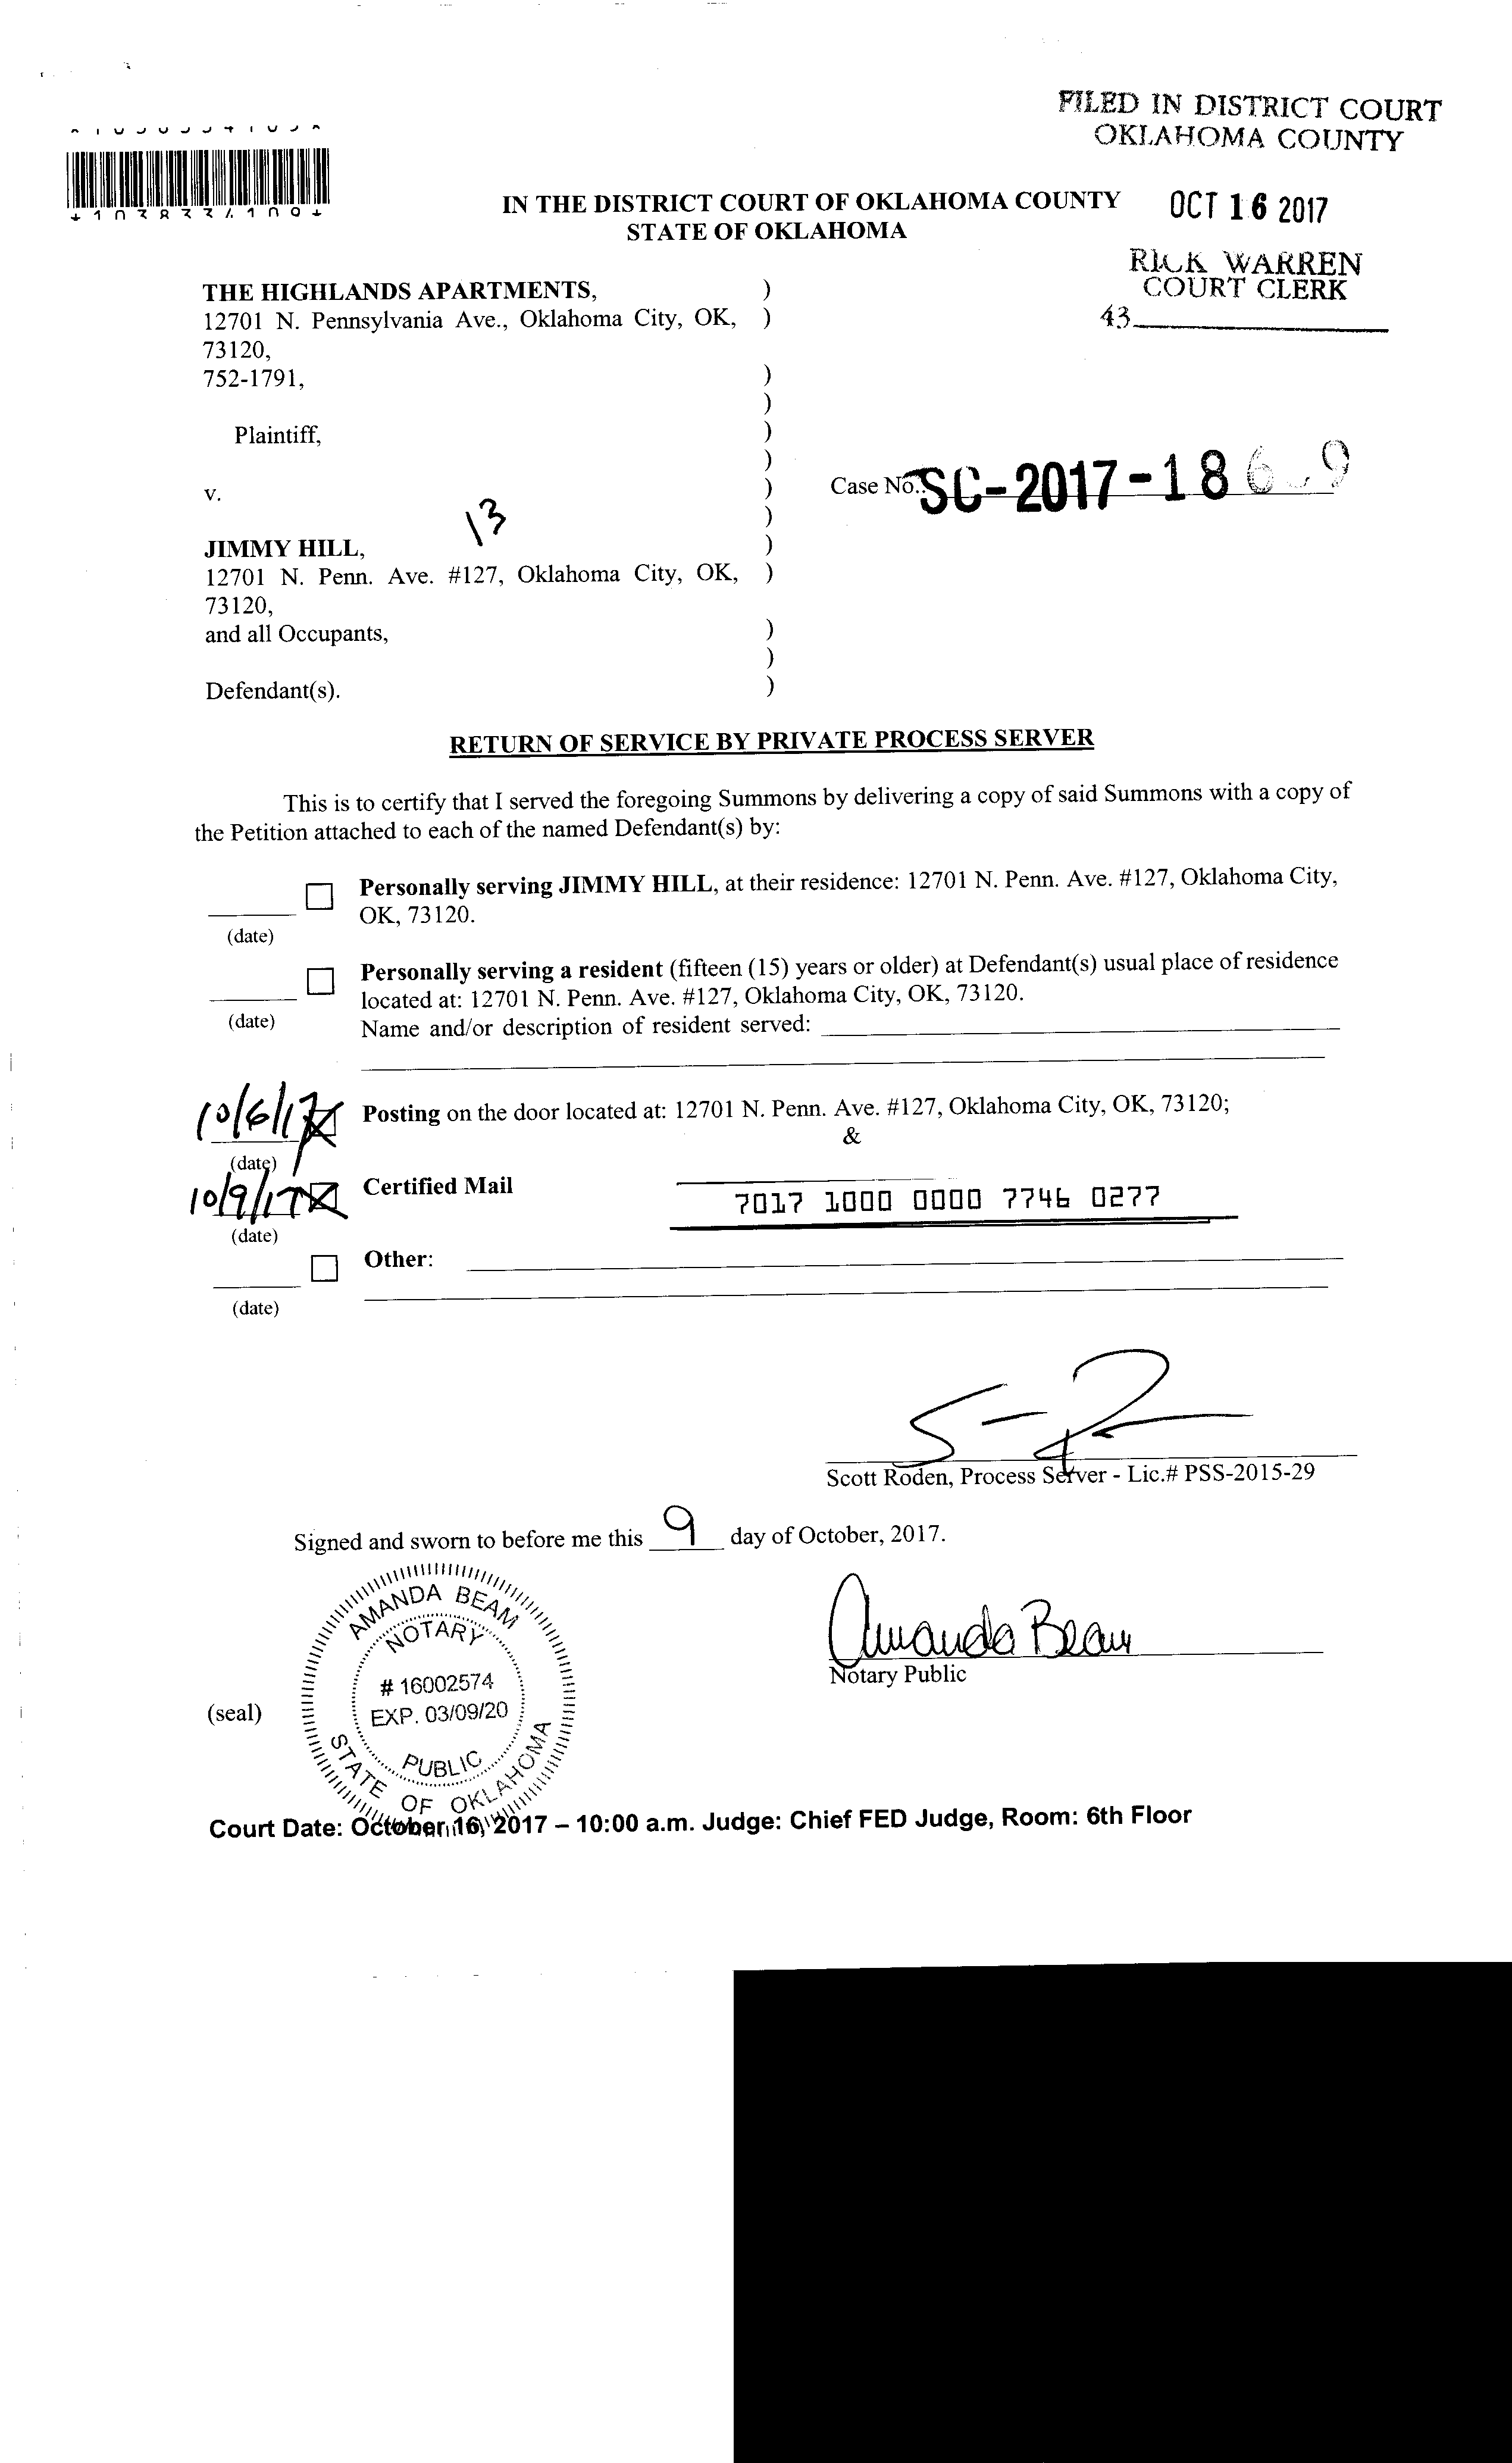 FILED IN DISTRICT COURT
OKLAHOMA COUNTY
IN THE DISTRICT COURT OF OKLAHOMA COUNTY
STATE OF OKLAHOMA
OCT 16 2017
RICK WARREN
COURT CLERK
43
THE HIGHLANDS APARTMENTS, )
12701 N. Pennsylvania Ave., Oklahoma City, OK, )
73120,
752-1791, )
)
Plaintiff, )
)
v. )
13 )
JIMMY HILL, )
12701 N. Penn. Ave. #127, Oklahoma City, OK, )
73120,
and all Occupants, )
)
Defendant(s). )
Case No.: SC-2017-18
RETURN OF SERVICE BY PRIVATE PROCESS SERVER
This is to certify that I served the foregoing Summons by delivering a copy of said Summons with a copy of
the Petition attached to each of the named Defendant(s) by:
Personally serving JIMMY HILL, at their residence: 12701 N. Penn. Ave. #127, Oklahoma City,
OK, 73120.
(date)
Personally serving a resident (fifteen (15) years or older) at Defendant(s) usual place of residence
located at: 12701 N. Penn. Ave. #127, Oklahoma City, OK, 73120.
(date)
Name and/or description of resident served:
10/6/17 Posting on the door located at: 12701 N. Penn. Ave. #127, Oklahoma City, OK, 73120;
&
(date)
10/9/17 Certified Mail 7017 1000 0000 7746 0277
(date)
Other:
(date)
Scott Roden, Process Server - Lic.# PSS-2015-29
Signed and sworn to before me this 9 day of October, 2017.
Amanda Beam
Notary Public
(seal)
AMANDA BEAM
NOTARY
# 16002574
EXP. 03/09/20
PUBLIC
STATE OF OKLAHOMA
Court Date: October 16, 2017 – 10:00 a.m. Judge: Chief FED Judge, Room: 6th Floor